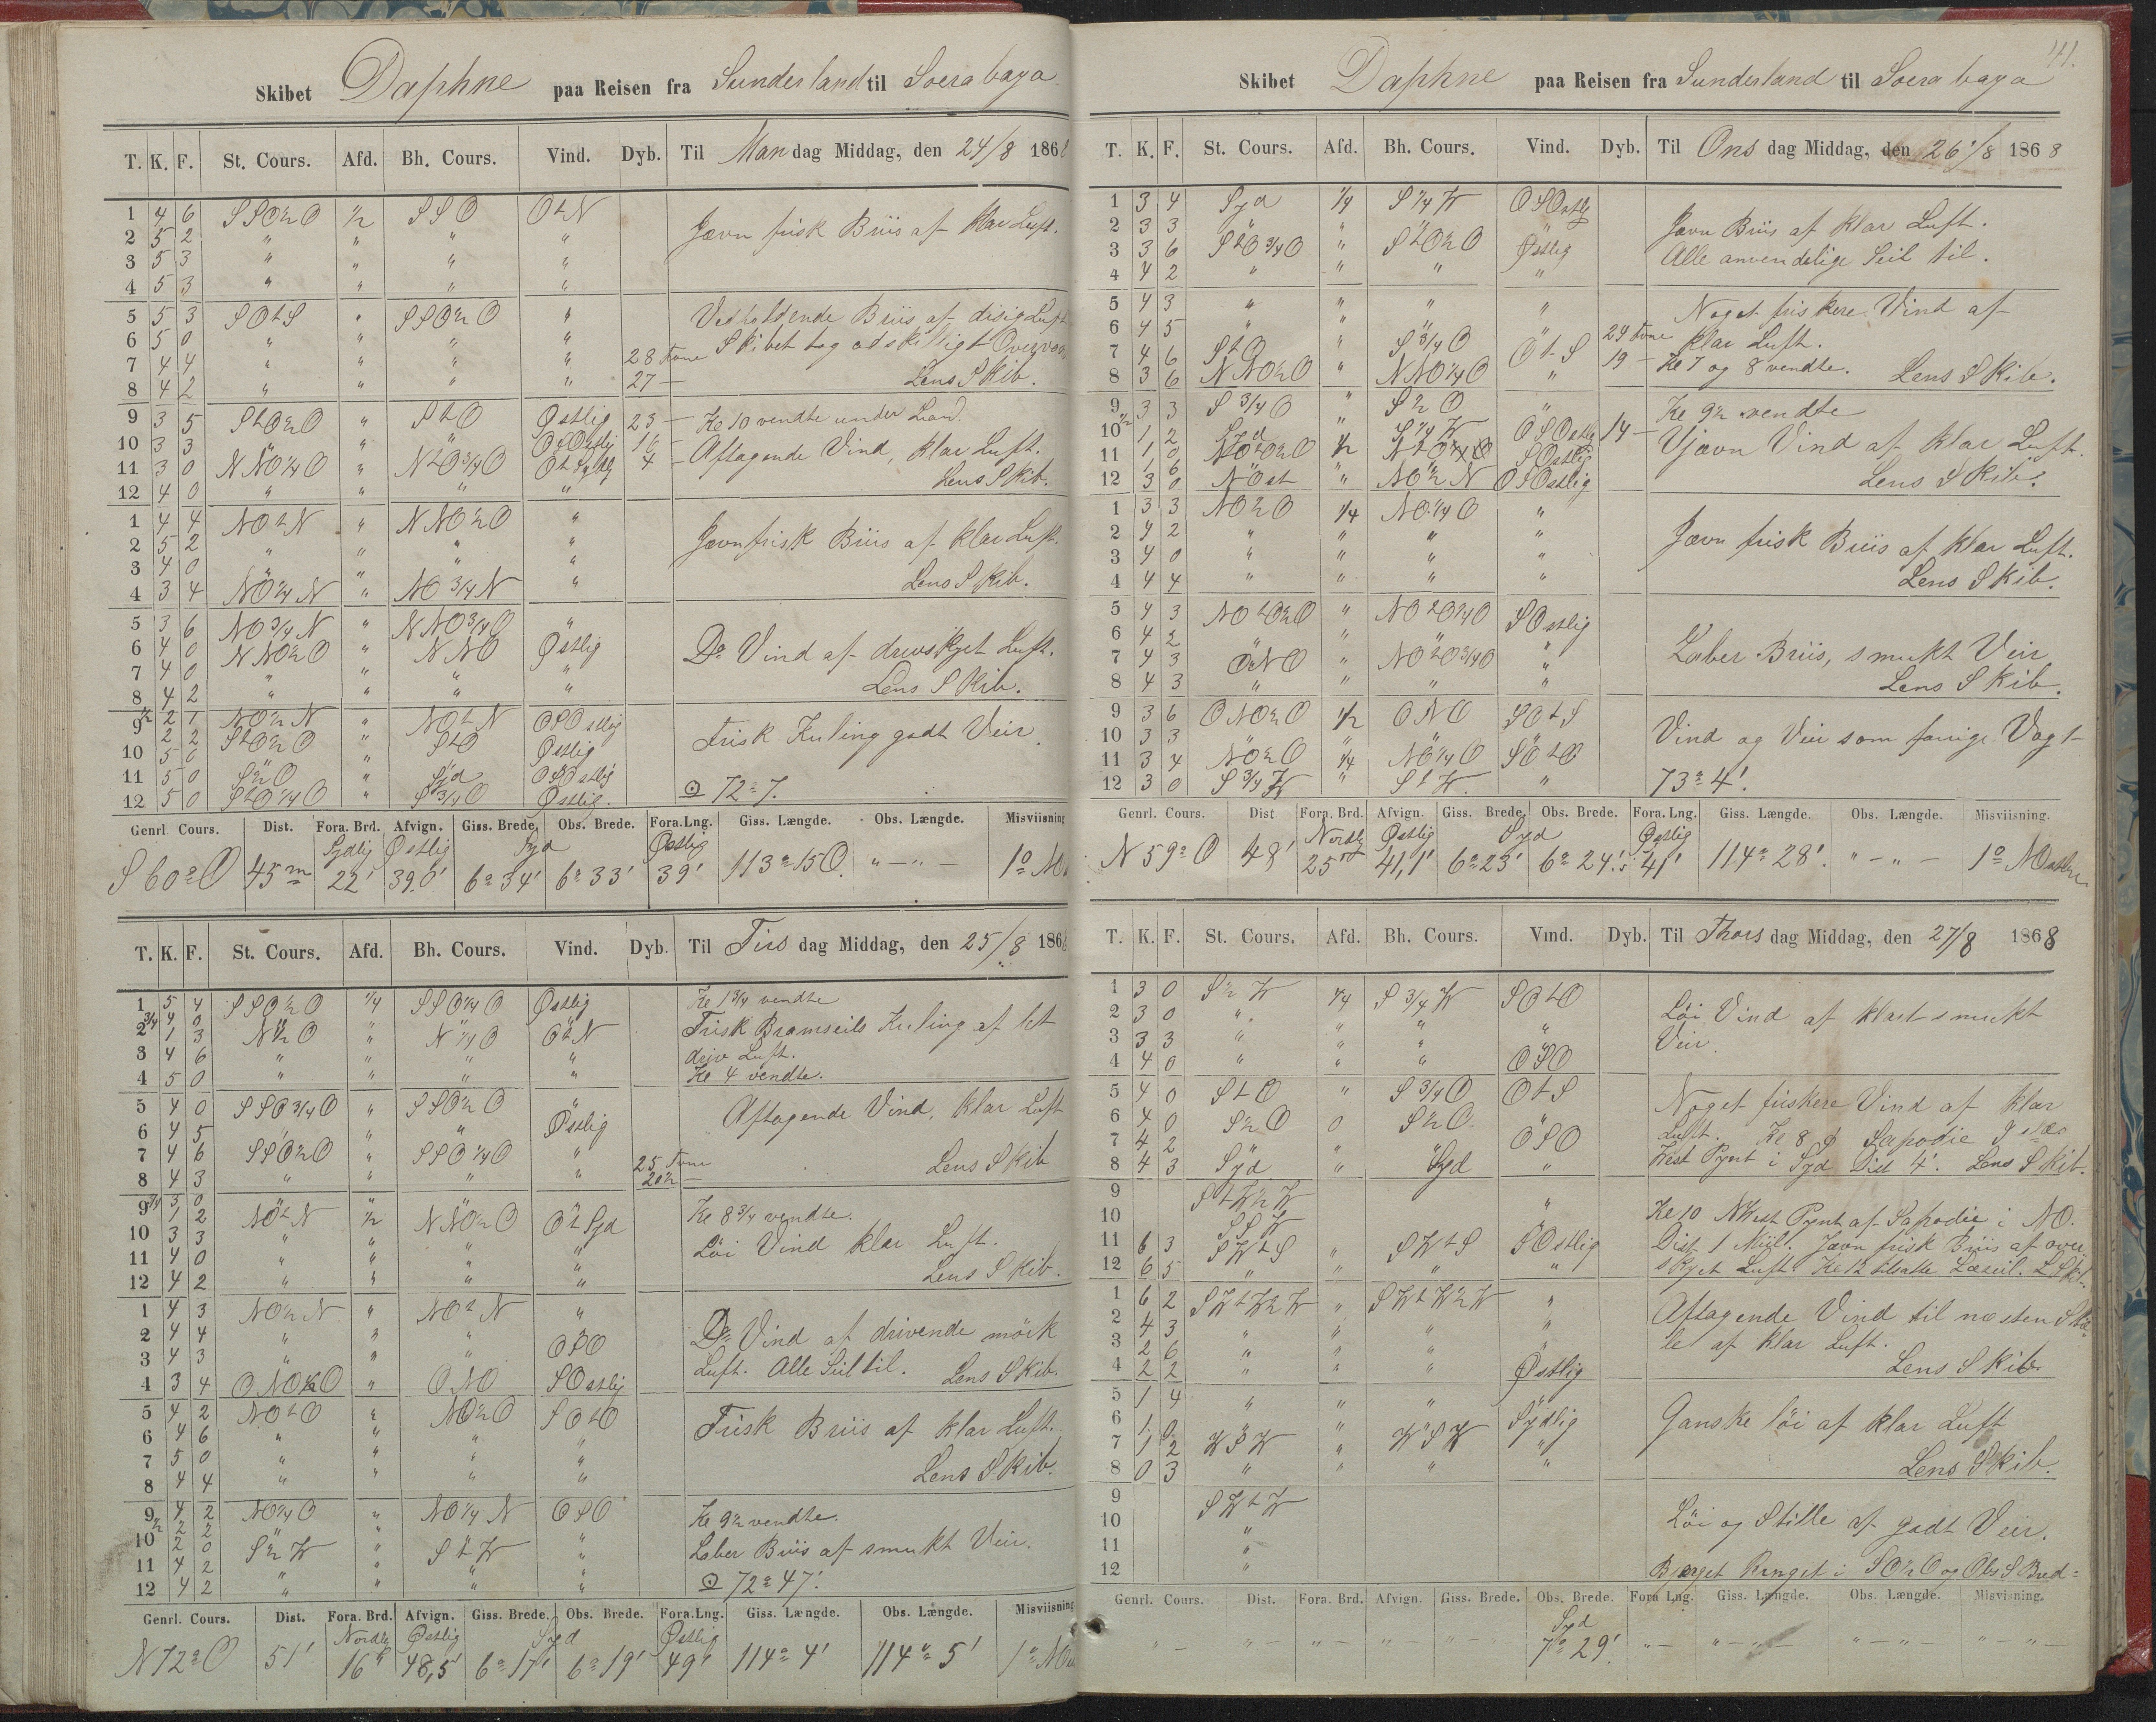 Skibet Daphne paa Reisen fra Sunderland til Soerabaya
T. K. F. St. Cours. Afd. Bh. Cours. Vind. Dyb. Til Mandag Middag, den 24/8 186
1 4 6 SSO½O ½ SSO OtN Jævn frisk Briis af klar Luft.
2 5 2 " " " "
3 5 3 " " " "
4 5 3 " " " "
5 5 3 SOtS " SSO½O " Vedholdende Briis af disig Luft
6 5 0 " " " " Skibet tog adskilligt
7 4 4 " " " " 28 Fvne
8 4 2 " " " " 27 — Lens Skib.
9 3 5 StO½O " StO Østlig 23 — Kl 10 vendte under Land.
10 3 3 " " " OSOstlig 16 Aftagende Vind, klar Luft.
11 3 0 NNO¼O " NtO¾O 4 —
12 4 0 " " " " Lens Skib.
1 4 4 NOtN " NNO½O " Jævn frisk Briis af klar Luft.
2 5 2 " " " "
3 4 0 " " " "
4 3 4 NO¼N " NO¾N " Lens Skib.
5 3 6 NO¾N " NNO¾O "
6 4 0 NNO½O " NNO Østlig Do Vind af Luft.
7 4 0 " " " "
8 4 2 " " " " Lens Skib.
9 ½ 2 1 NO½N " NOtN OSOstlig
2 2 StO½O " StO Østlig Frisk Kuling godt Veir.
10 5 0 " "
11 5 0 S½O " Syd OSOstlig
12 5 0 StO¼O " S¾O Østlig. ⊙ 72° 7.
Genrl. Cours. Dist. Fora. Brd. Afvign. Giss. Brede. Obs. Brede. Fora. Lng. Giss. Længde. Obs. Længde. Misviisning
Sydlig Østlig Syd Østlig
S 60° O 45 m 22' 39,0' 6° 34' 6° 33' 39' 113° 15 O. " — " — 1° NO
T. K. F. St. Cours. Afd. Bh. Cours. Vind. Dyb. Til Tirsdag Middag, den 25/8 186
1 5 4 SSO½O ¼ SSO¼O Østlig Kl 1¾ vendte
2 ¾ 4 0 " "
1 3 N½O " N¼O OtN Frisk Bramseils Kuling af let
3 4 6 " " " " Luft.
4 5 0 " " " " Kl 4 vendte.
5 4 0 SSO¾O " SSO½O " Aftagende Vind, klar Luft
6 4 5 " " " Østlig
7 4 6 SSO½O " SSO¼O " 25 Fvne
8 4 3 " " " " 20½ — Lens Skib
9 ¾ 3 0 " " "
1 2 NOtN ½ NNO½O OtSyd Kl 8¾ vendte.
10 3 3 " " " " Löi Vind klar Luft.
11 4 0 " " " "
12 4 2 " " " " Lens Skib.
1 4 3 NO½N " NOtN "
2 4 4 " " " " Do Vind af drivende mörk
3 4 3 " " " OSO Luft. Alle Seil til.
4 3 4 ONO½O " ONO SOstlig Lens Skib.
5 4 2 NOtO " NO½O SOtO Frisk Briis af klar Luft.
6 4 6 " " " "
7 5 0 " " " "
8 4 4 " " " " Lens Skib.
9 ½ 4 2 NO¼O " NO¼N OSO Kl 9½ vendte.
2 2 " "
10 2 0 S½W " StW " Laber Briis af smukt Veir.
11 4 2 " " " "
12 4 2 " " " " ⊙ 72° 47'.
Genrl. Cours. Dist. Fora. Brd. Afvign. Giss. Brede. Obs. Brede. Fora. Lng. Giss. Længde. Obs. Længde. Misviisning
Nordlig Østlig Syd Østlig
N 72° O 51' 16' 48,5' 6° 17' 6° 19' 49' 114° 4' 114° 5' 1° NO
41.
Skibet Daphne paa Reisen fra Sunderland til Soerabaya
T. K. F. St. Cours. Afd. Bh. Cours. Vind. Dyb. Til Onsdag Middag, den 26/8 1868
1 3 4 Syd ¼ S¼W OSOstlig Jævn Briis af klar Luft.
2 3 3 " " " "
3 3 6 StO¾O " StO½O Østlig Alle anvendelige Seil til.
4 4 2 " " " "
5 4 3 " " " " Noget friskere Vind af
6 4 5 " " " " klar Luft.
7 4 6 StO " S¾O OtS 29 Fvne
8 3 6 NNO½O " NNO¼O " 19 — Kl 7 og 8 vendte. Lens Skib.
9 ½ 3 3 S¾O " S½O " Kl 9½ vendte
10 1 2 Syd " S¼W OSOstlig 14 — Ujævn Vind af klar Luft.
11 1 0 NOtO½O ½ SOstlig
1 6
12 3 0 NOst " NO½N OSOstlig Lens Skib.
1 3 3 NO½O ¼ NO¼O "
2 4 2 " " " " Jævn frisk Briis af klar Luft.
3 4 0 " " " "
4 4 4 " " " " Lens Skib.
5 4 3 NOtO½O " NOtO¼O SOstlig
6 4 2 " " " Laber Briis, smukt Veir
7 4 3 ONO " NOtO¾O "
8 4 3 " " " " Lens Skib.
9 3 6 ONO½O ½ ONO SOtS Vind og Veir som forrige Vagt
10 3 3 " " " "
11 3 4 NO½O ¼ NO¼O SOtO
12 3 0 S¾W " StW " 73° 4'.
Genrl. Cours. Dist Fora. Brd. Afvign. Giss. Brede. Obs. Brede. Fora. Lng. Giss. Længde. Obs. Længde. Misviisning.
Nordlig Østlig Syd Østlig
N 59° O 48' 25' 41,1' 6° 23' 6° 24',5 41' 114° 28'. " — " — 1° NOstlig
T. K. F. St. Cours. Afd. Bh. Cours. Vind. Dyb. Til Thorsdag Middag, den 27/8 1868
1 3 0 S½W ¼ S¾W SOtO Löi Vind af klart smukt
2 3 0 " " " "
3 3 3 " " " " Veir.
4 4 0 " " " OSO
5 4 0 StO " S¾O OtS Noget friskere Vind af klar
6 4 0 S½O 0 S½O " Luft. Kl 8 Sapodie
7 4 2 OSO
8 4 3 Syd " Syd " West Pynt i Syd Dist 4'. Lens Skib.
9 StW½W "
10 SSW Kl 10 NWest Pynt af Sapodie i NO.
11 6 3 SWtS " SWtS SOstlig Dist 1 Miil. Jævn frisk Briis af over
12 6 5 " " " " skyet Luft. Kl 12 Læseil. L Skib.
1 6 2 SWtW½W " SWtW½W " Aftagende Vind til næsten Stil-
2 4 3 " " " "
3 2 6 " " " " le af klar Luft.
4 2 2 " " " Østlig Lens Skib
5 1 4 " " " " Ganske löi af klar Luft
6 1 0 " " " Sydlig
7 1 2 WSW " WSW "
8 0 3 " " " " Lens Skib.
9 SWtW
10 " Löi og Stille af godt Veir.
11 "
12 " i SO½O og Obs S Bred=
Genrl. Cours. Dist. Fora. Brd. Afvign. Giss. Brede. Obs. Brede. Fora Lng. Giss. Længde. Obs. Længde. Misvisning.
Syd
" — " — " — " — " — 7° 29'. " — " — " — " — " — " — " —